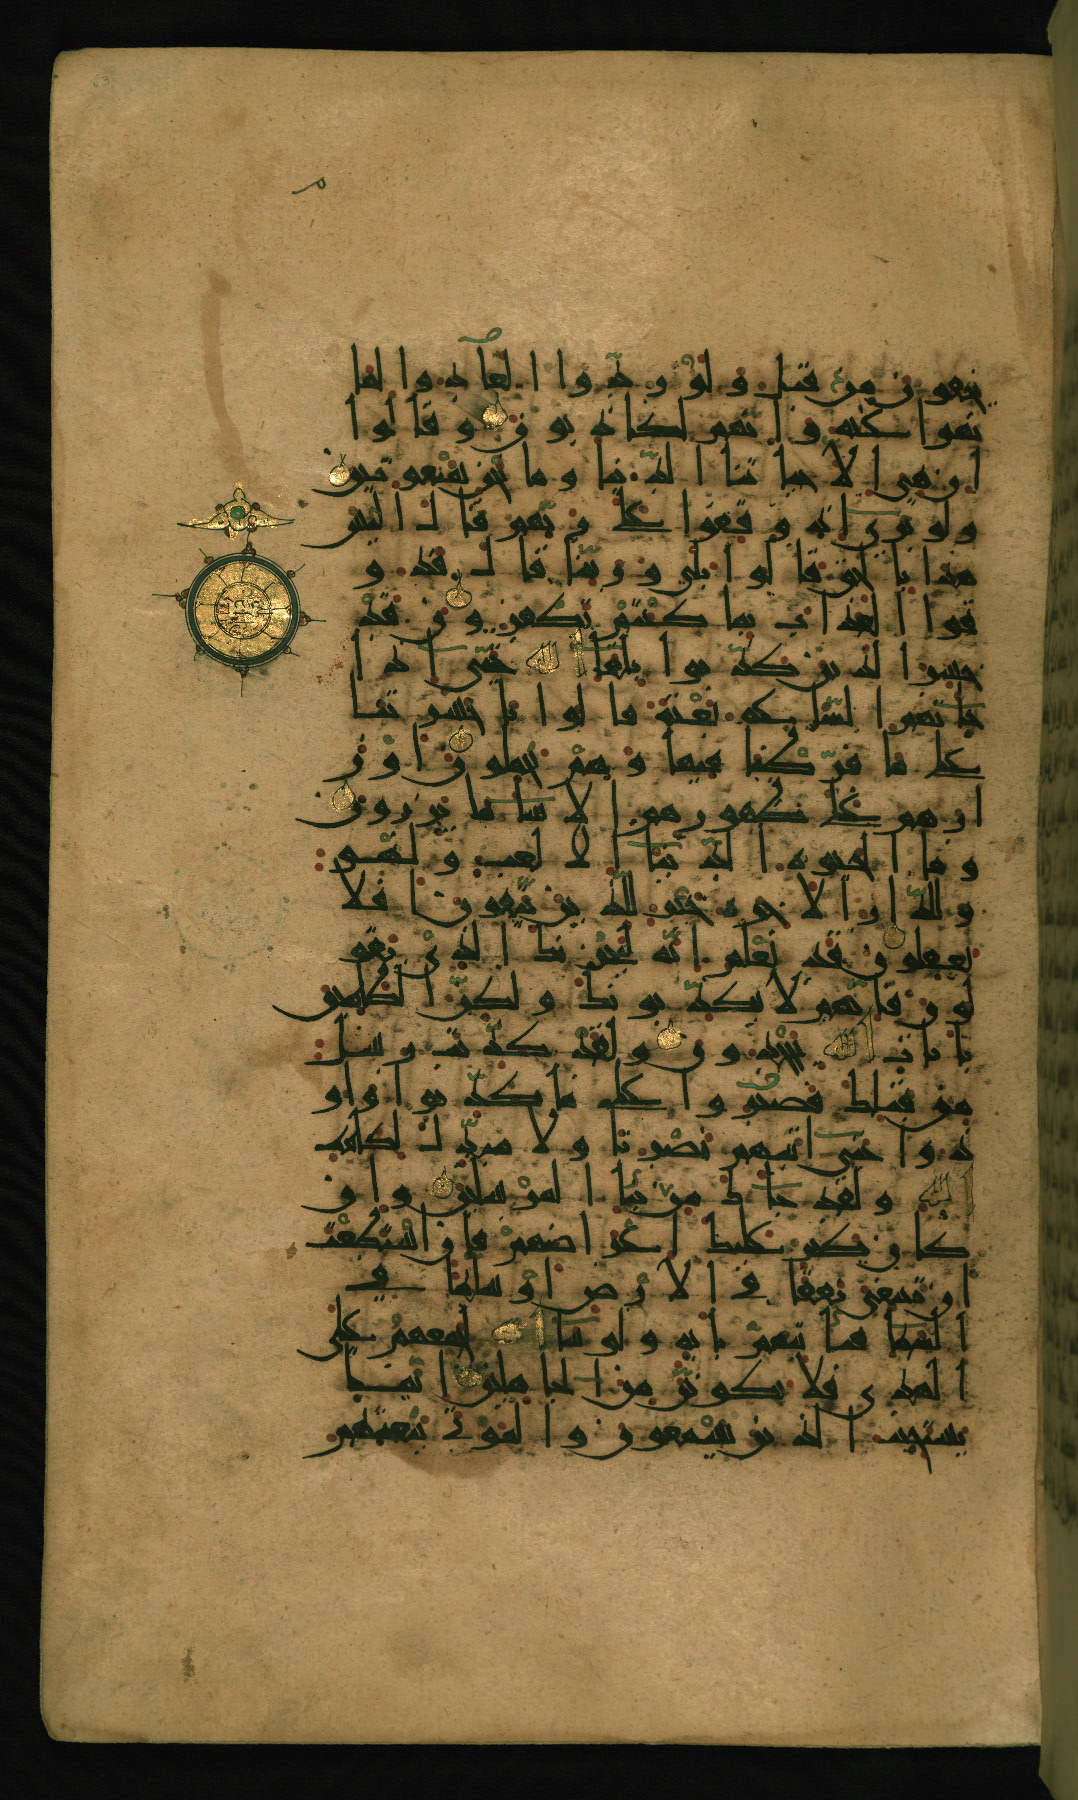 يخفون من قبل ولو ردوا لعادوا لما
نهوا عنه وانهم لكاذبون وقالوا
ان هي الا حياتنا الدنيا وما نحن بمبعوثين
ولو ترى اذ وقفوا على ربهم قال اليس
هذا بالحق قالوا بلى وربنا قال فذو
قوا العذاب بما كنتم تكفرون قد
خسر الذين كذبوا بلقآ الله حتى اذا
جآتهم الساعة بغتة قالوا يا حسرتنا
على ما فرطنا فيها وهم يحملون اوز
ارهم على ظهورهم الا سآ ما يزرون
وما الحيوة الدنيآ الا لعب ولهو
وللدار الاخرة خير للذين يتقون افلا
تعقلون قد نعلم انه ليحزنك الذي يقو
لون فانهم لا يكذبونك ولكن الظالمين
بايات الله يجحدون ولقد كذبت رسل
من قبلك فصبروا على ما كذبوا واو
ذوا حتى اتيهم نصرنا ولا مبدل لكلمت
الله ولقد جآك من نبا المرسلين وان
كان كبر عليك اعراضهم فان استطعت
ان تبتغي نفقا في الارض او سلما في
السمآ فتاتيهم باية ولو شآ الله لجمعهم على
الهدى فلا تكونن من الجاهلين انما
يستجيب الذين يسمعون والموتى يبعثهم